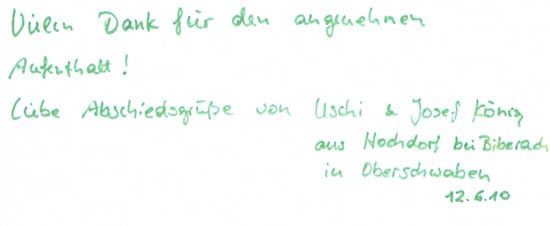 Vielen Dank für den angenehmen
Aufenthalt!
Liebe Abschiedsgrüße von Uschi & Josef König
aus Hochdorf bei Biberach
in Oberschwaben
12.6.10